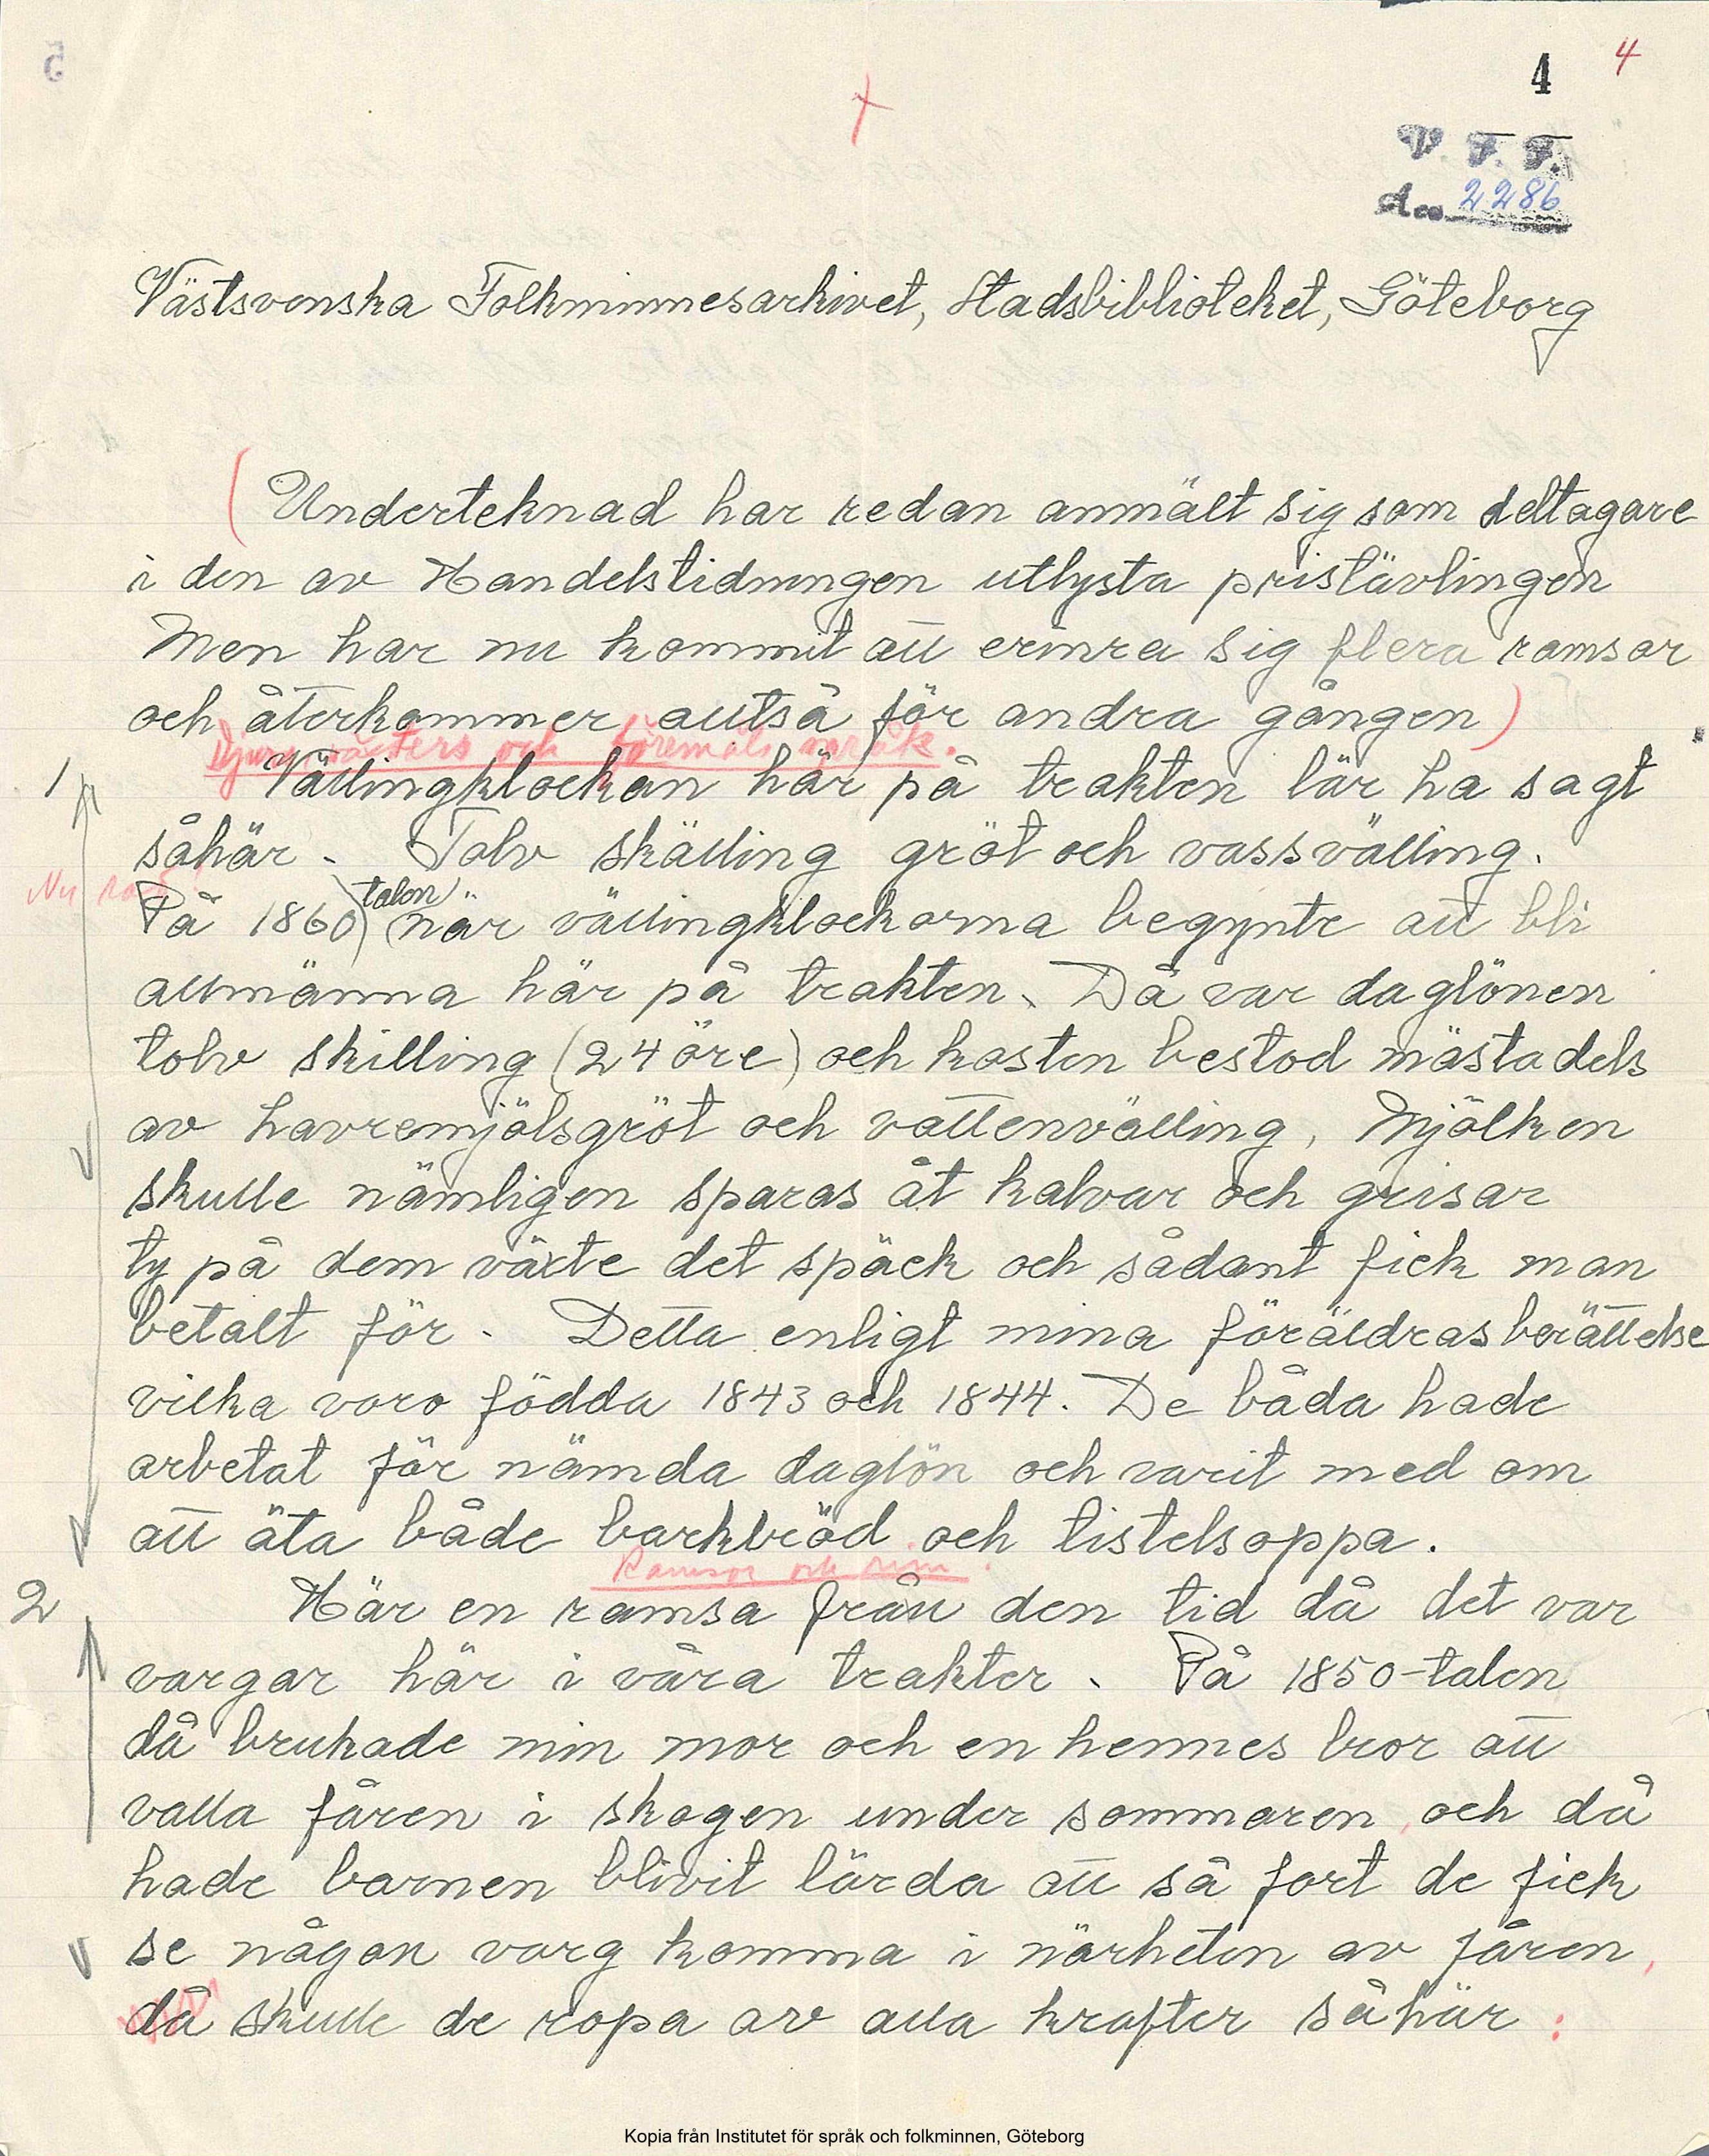 4 4
V. F. F.
Acc 2286
Västsvenska Folkminnesarkivet, Stadsbiblioteket, Göteborg
(Underteknad har redan anmält sig som deltagare
i den av Handelstidningen utlysta pristävlingen
Men har nu kommit att erinra sig flera ramsor
och återkommer alltså för andra gången)
Djurs, växters och föremåls språk.
1 Vällingklockan här på trakten lär ha sagt
såhär. Tolv skälling gröt och vassvälling.
Nu
talen
På 1860) när vällingklockorna begynte att bli
allmänna här på trakten. Då var daglönen
tolv skilling (24 öre) och kosten bestod mästadels
av havremjölsgröt och vattenvälling, Mjölken
skulle nämligen sparas åt kalvar och grisar
ty på dem växte det späck och sådant fick man
betalt för. Detta enligt mina föräldras berättelse
vilka voro födda 1843 och 1844. De båda hade
arbetat för nämda daglön och varit med om
att äta både barkbröd och tistelsoppa.
Ramsor och rim.
2 Här en ramsa från den tid då det var
vargar här i våra trakter. På 1850-talen
då brukade min mor och en hennes bror att
valla fåren i skogen under sommaren, och då
hade barnen blivit lärda att så fort de fick
se någon varg komma i närheten av fåren,
då skulle de ropa av alla krafter såhär:
Kopia från Institutet för språk och folkminnen, Göteborg